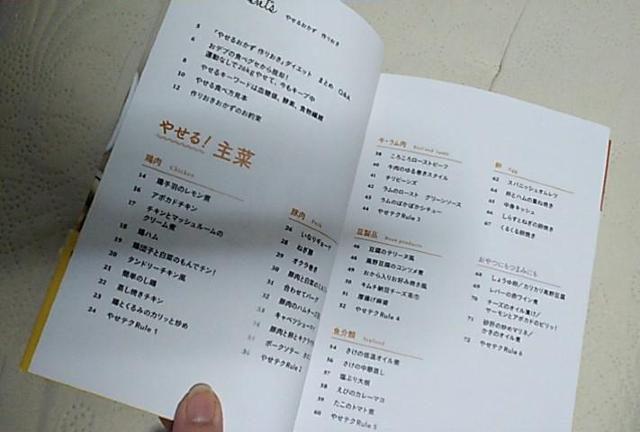 やせるおかず 作りおき
5 「やせるおかず 作りおき」ダイエット まとめ Q&A
6 おデブの食べグセから脱却!
運動なしで26kgやせて、今もキープ中
8 やせるキーワードは血糖値、酵素、食物繊維
10 やせる食べ方見本
12 作りおきおかずのお約束
やせる!主菜
鶏肉 Chicken
14 鶏手羽のレモン煮
16 アボカドチキン
17 チキンとマッシュルームの
クリーム煮
18 鶏ハム
19 鶏団子と白菜のもんでチン!
20 タンドリーチキン風
21 簡単のし鶏
22 蒸し焼きチキン
23 鶏とくるみのカリッと炒め
24 やせテクRule 1
豚肉 Pork
26 いなりギョーザ
28 ねぎ豚
29 オクラ巻き
30 豚肉と豆の
31 合わせてバーグ
32 豚肉のハムチーズ
キャベツシュー
豚肉と卵とキクラゲ
ポークソテー
やせテクRule 2
牛・ラム肉 Beef and Lamb
38 ころころローストビーフ
40 牛肉のゆる巻きスタイル
41 チリビーンズ
42 ラムのロースト グリーンソース
43 ラムのぱかぱかシチュー
44 やせテクRule 3
豆製品 Bean products
46 豆腐のテリーヌ風
48 高野豆腐のコンソメ煮
49 おから入りお好み焼き風
50 キムチ納豆チーズ巾巾
51 厚揚げ麻婆
52 やせテクRule 4
魚介類 Seafood
54 さけの低温オイル煮
56 さけの中華蒸し
57 塩ぶり大根
58 えびのカレーマヨ
59 たこのトマト煮
60 やせテクRule 5
卵 Egg
62 スパニッシュオムレツ
64 卵とハムの重ね焼き
65 中身キッシュ
66 しらすとねぎの卵焼き
67 くるくる卵焼き
おやつにもつまみにも
68 しょうゆ卵/カリカリ高野豆腐
69 レバーの赤ワイン煮
70 チーズのオイル漬け/
サーモンとアボカドのピリッ!
71 砂肝の炒めマリネ/
かきのオイル煮
72 やせテクRule 6